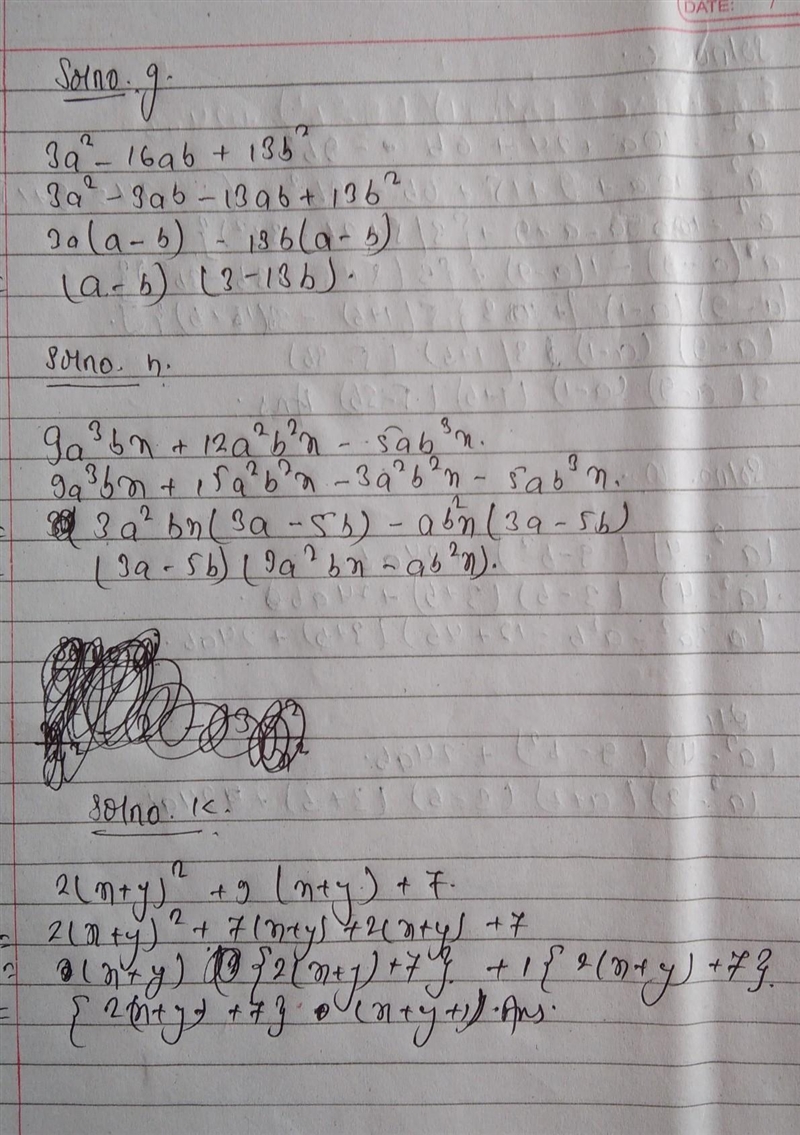 DATE:
Solno. g.
3a² - 16ab + 13b²
3a² - 3ab - 13ab + 13b²
3a(a - b) - 13b(a - b)
= (a - b) (3 - 13b).
Solno. h.
9a³bx + 12a²b²x - 5ab³x.
9a³bx + 15a²b²x - 3a²b²x - 5ab³x.
= 3a²bx(3a - 5b) - ab²x(3a - 5b)
= (3a - 5b) (3a²bx - ab²x).
Solno. K.
2(x+y)² + 9 (x+y) + 7.
= 2(x+y)² + 7(x+y) + 2(x+y) + 7
= (x+y) {2(x+y) + 7} + 1{2(x+y) + 7}.
= {2(x+y) + 7} (x+y+1). Ans.